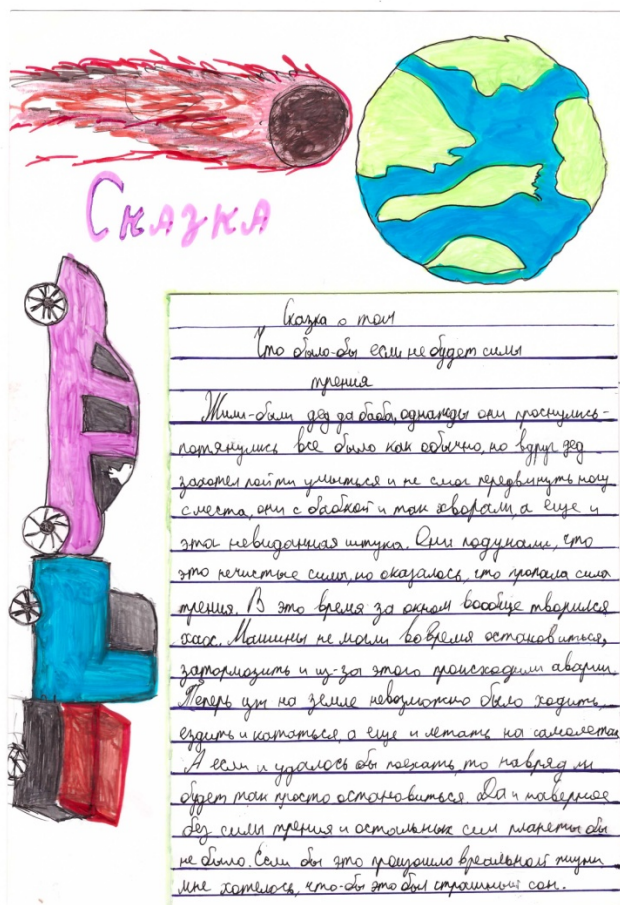 Сказка
Сказка о том
Что было-бы если не будет силы
трения
Жили-были дед да баба, однажды они проснулись-
потянулись все было как обычно, но вдруг дед
захотел пойти умыться и не смог передвинуть ногу
с места, они с бабкой и так хворали, а еще и
эта невиданная штука. Они подумали, что
это нечистые силы, но оказалось, что пропала сила
трения. В это время за окном вообще творился
хаос. Машины не могли вовремя остановиться,
затормозить и из-за этого происходили аварии.
Теперь уж на земле невозможно было ходить,
ездить и кататься, а еще и летать на самолетах
А если и удалось бы поехать, то наврядли
будет так просто остановиться. Да и наверное
без силы трения и остальных сил планеты бы
не было. Если бы это произошло в реальной жизни
мне хотелось, что-бы это был страшный сон.